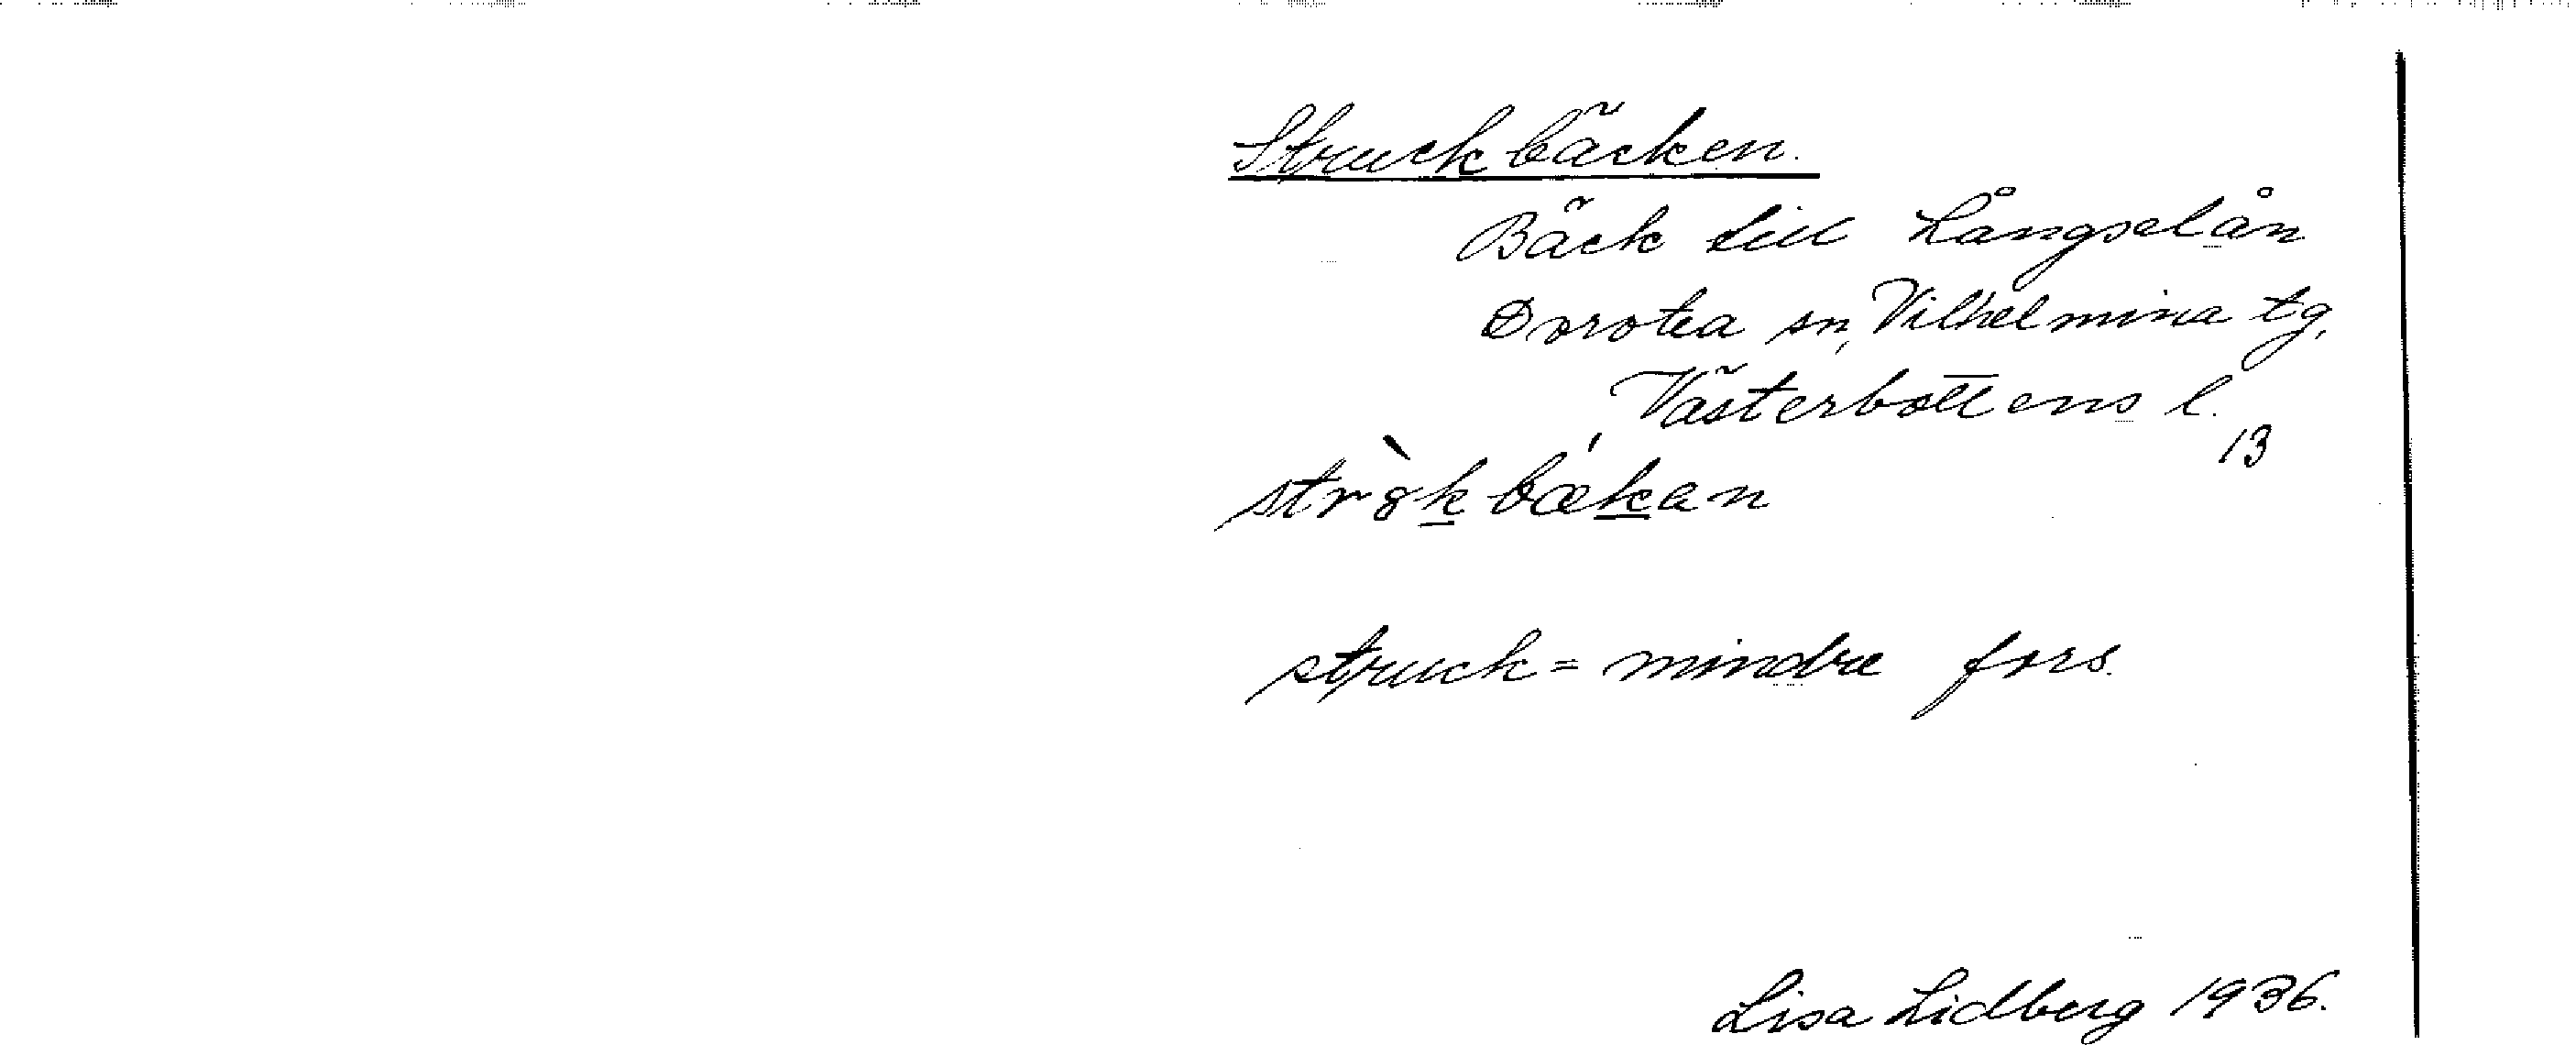 Struckbäcken.
Bäck till Långselån
Dorotea sn, Vilhelmina tg,
Västerbottens l.
13
str8̀kbǽkan
struck = mindre fors.
Lisa Lidberg 1936.